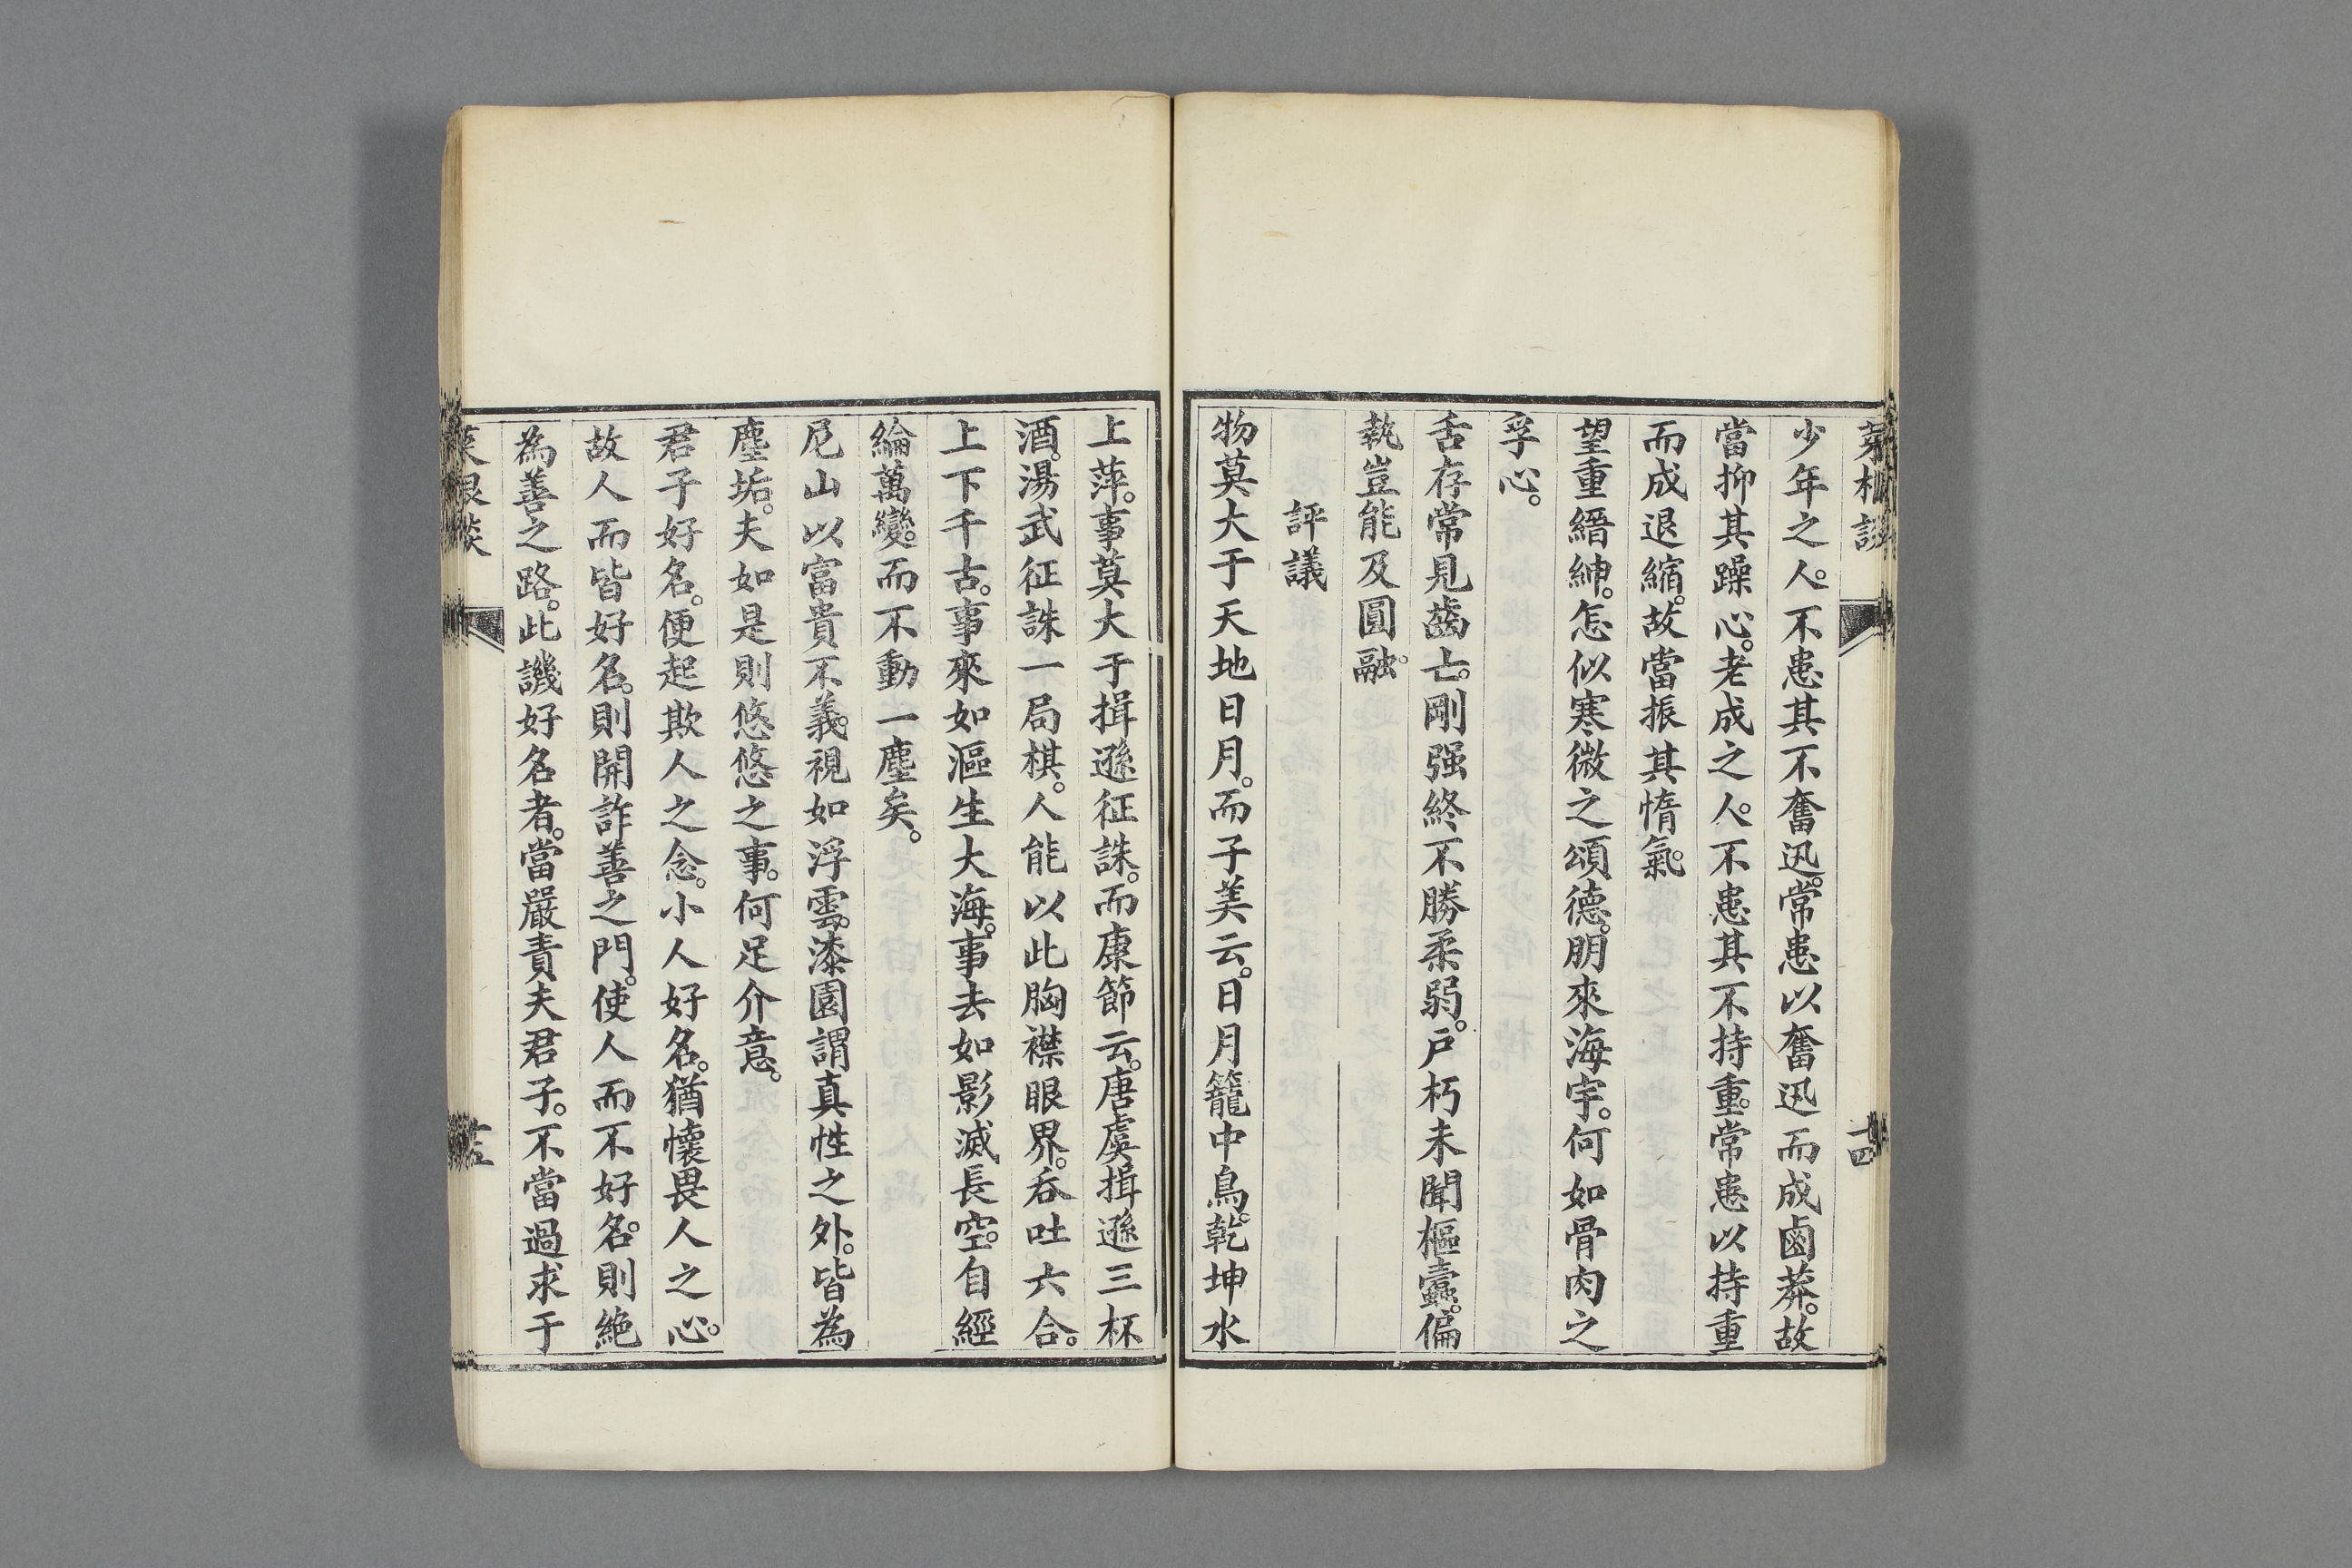 少年之人。不患其不奮迅。常患以奮迅而成鹵莽。故
當抑其躁心。老成之人。不患其不持重。常患以持重
而成退縮。故當振其惰氣。
望重縉紳。怎似寒微之頌德。朋來海宇。何如骨肉之
孚心。
舌存常見齒亡。剛强終不勝柔弱。戶朽未聞樞蠹。偏
執豈能及圓融。
評議
物莫大于天地日月。而子美云。日月籠中鳥。乾坤水
上萍。事莫大于揖遜征誅。而康節云。唐虞揖遜三杯
酒。湯武征誅一局棋。人能以此胸襟眼界。吞吐六合。
上下千古。事來如漚生大海。事去如影滅長空。自經
綸萬變。而不動一塵矣。
尼山以富貴不義。視如浮雲。漆園謂真性之外。皆為
塵垢。夫如是則悠悠之事。何足介意。
君子好名。便起欺人之念。小人好名。猶懷畏人之心。
故人而皆好名。則開詐善之門。使人而不好名。則絶
為善之路。此譏好名者。當嚴責夫君子。不當過求于
菜根談